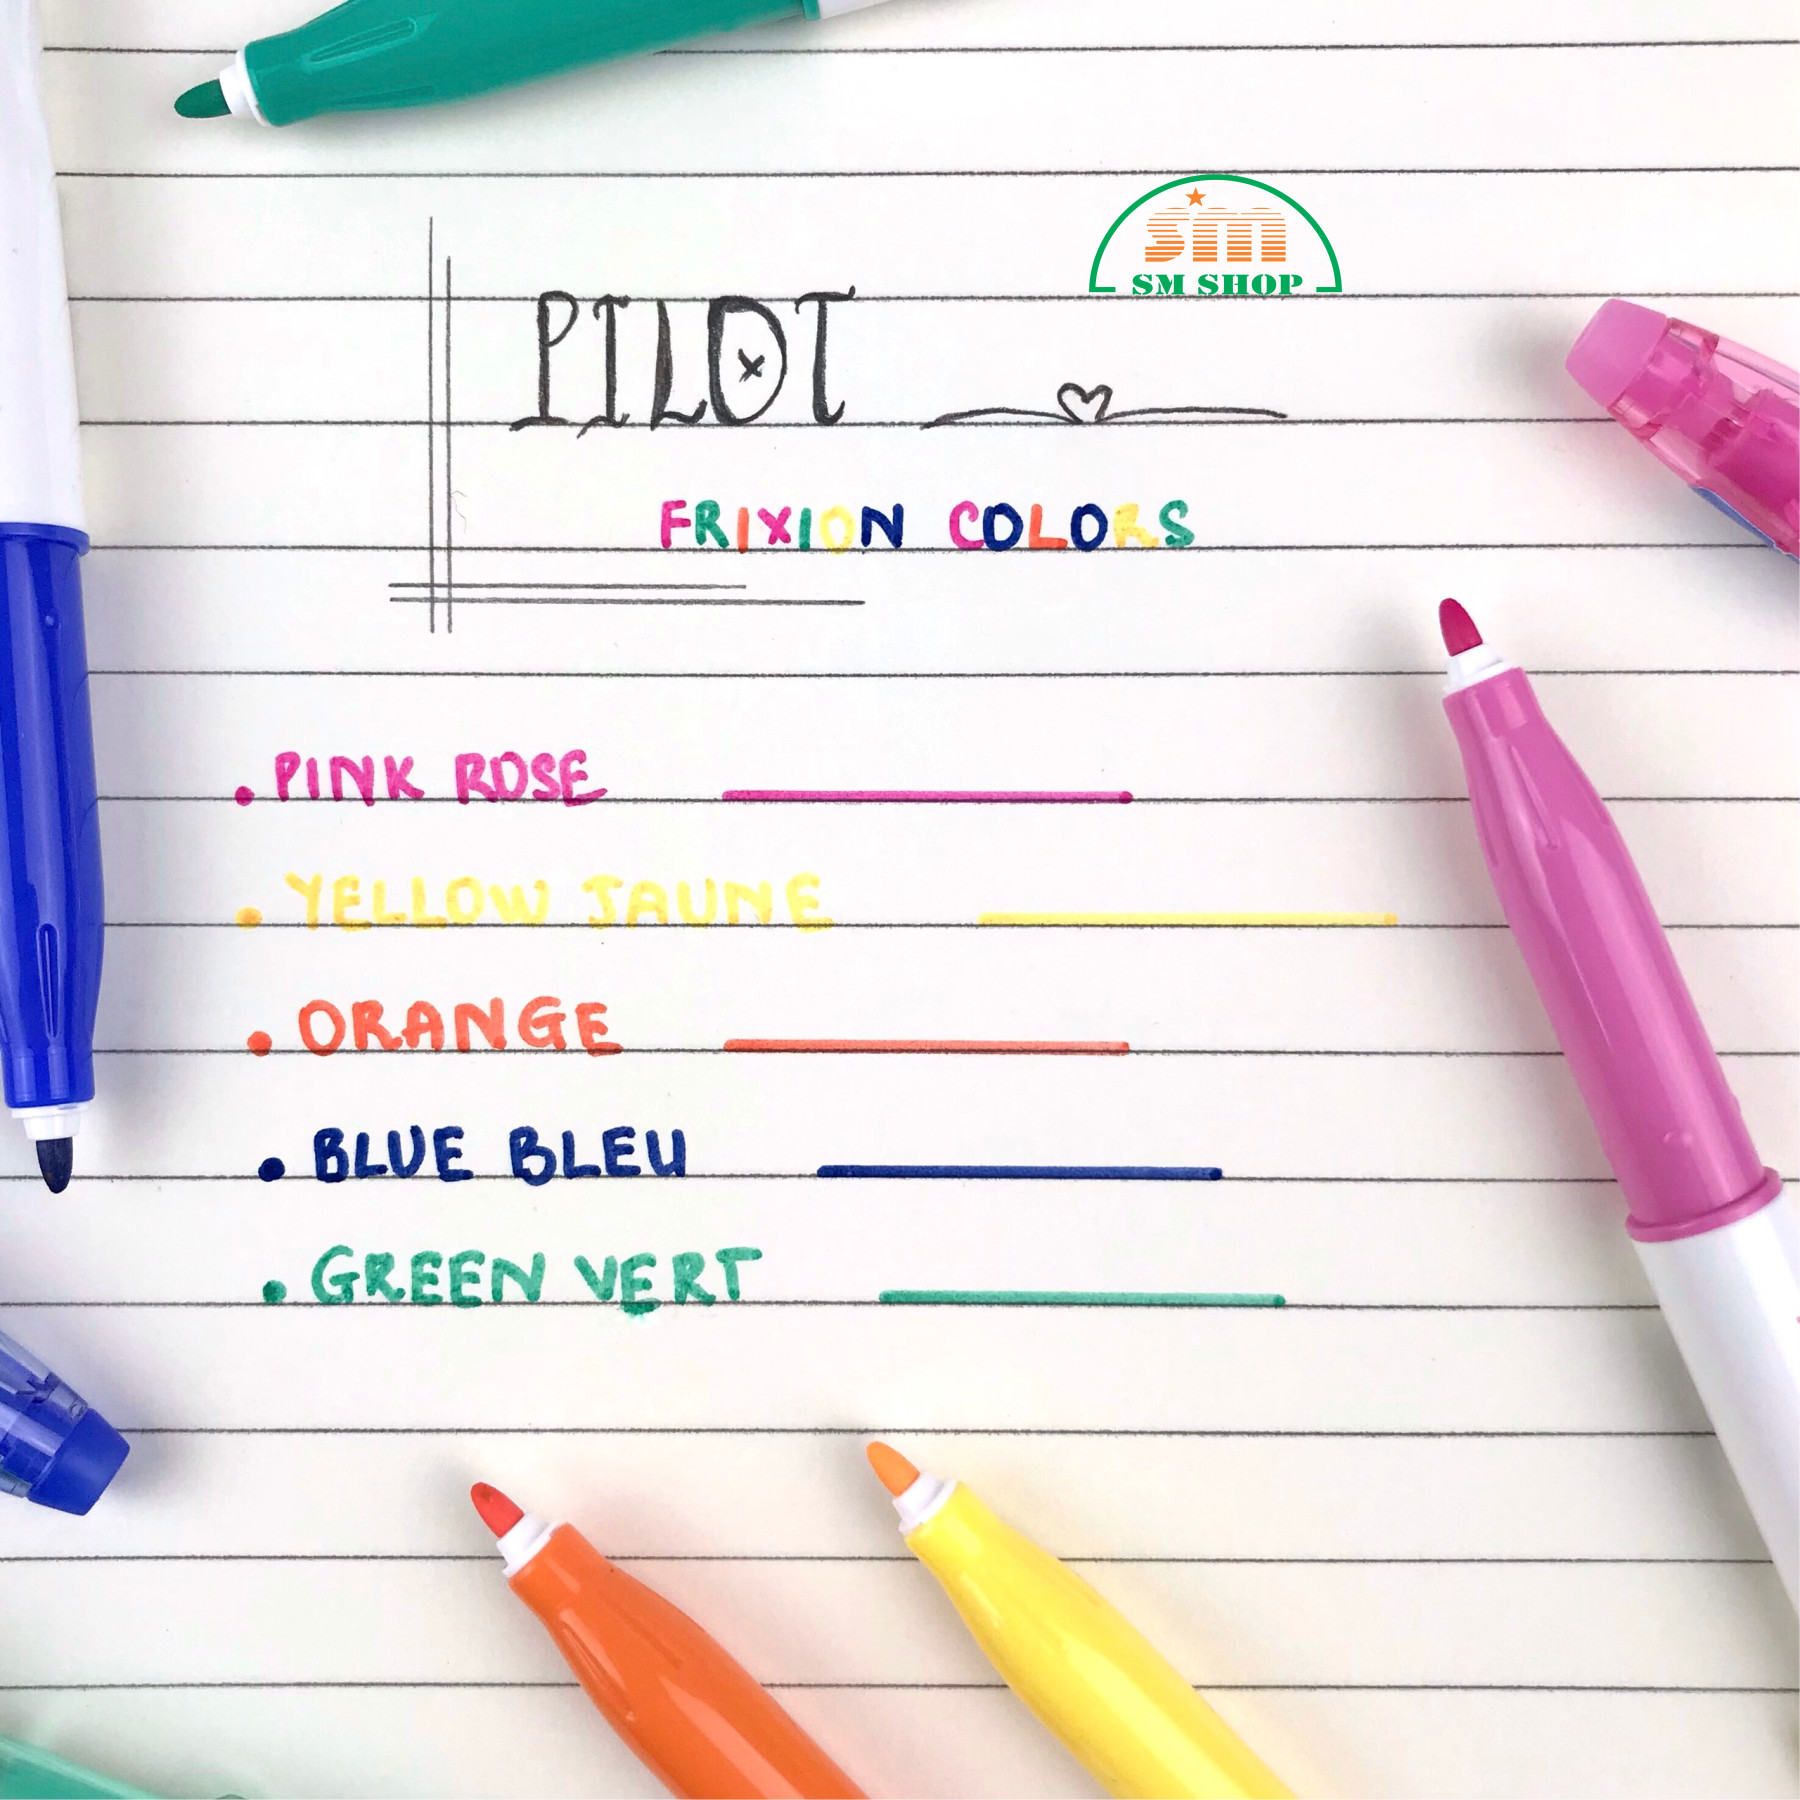 sim
SM SHOP
PILOT
FRIXION COLORS
• PINK ROSE
• YELLOW JAUNE
• ORANGE
• BLUE BLEU
• GREEN VERT